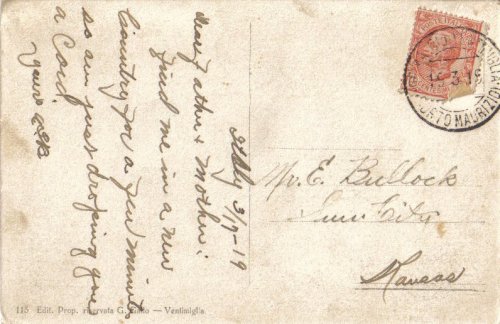 Italy 3/9-19
Dear Father & Mother:
Find me in a new
Country for a few minuts
so am just droping you
a Card.
yours
Mr. E. Bullock
Sun City
Kansas
PORTO MAURIZIO
115 Edif. Prop. riservata G. — Ventimiglia